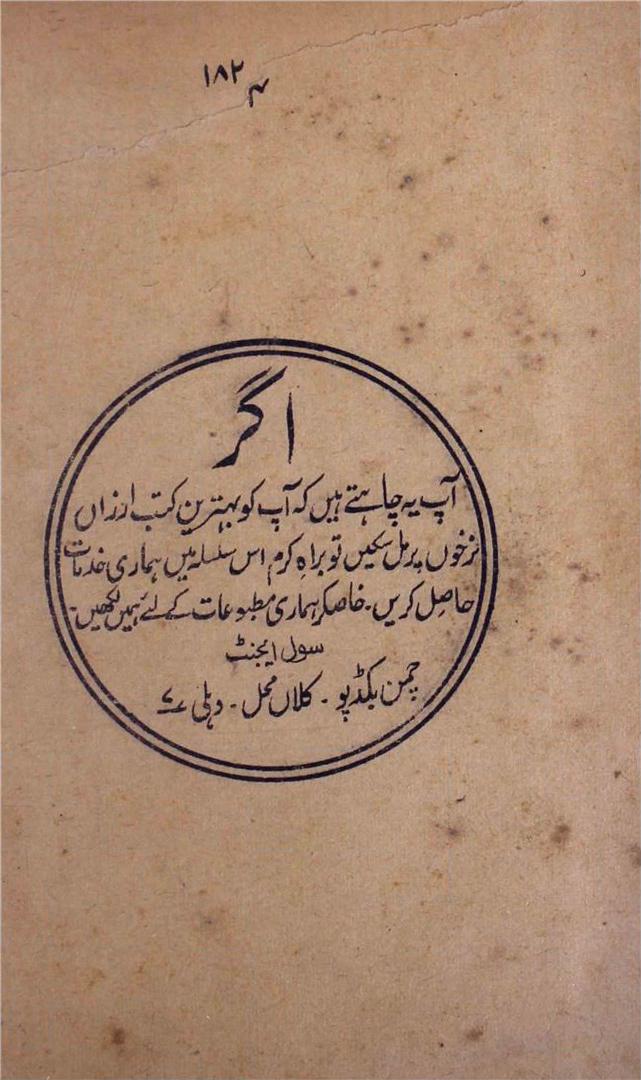 ۱۸۲
۴
اگر
آپ یہ چاہتے ہیں کہ آپ کو بہترین کتب ارزاں
نرخوں پر مل سکیں تو براہِ کرم اس سلسلہ میں ہماری خدمات
حاصل کریں۔ خاصکر ہماری مطبوعات کے لئے ہمیں لکھیں۔
سول ایجنٹ
چمن بکڈپو۔ کلاں محل۔ دہلی